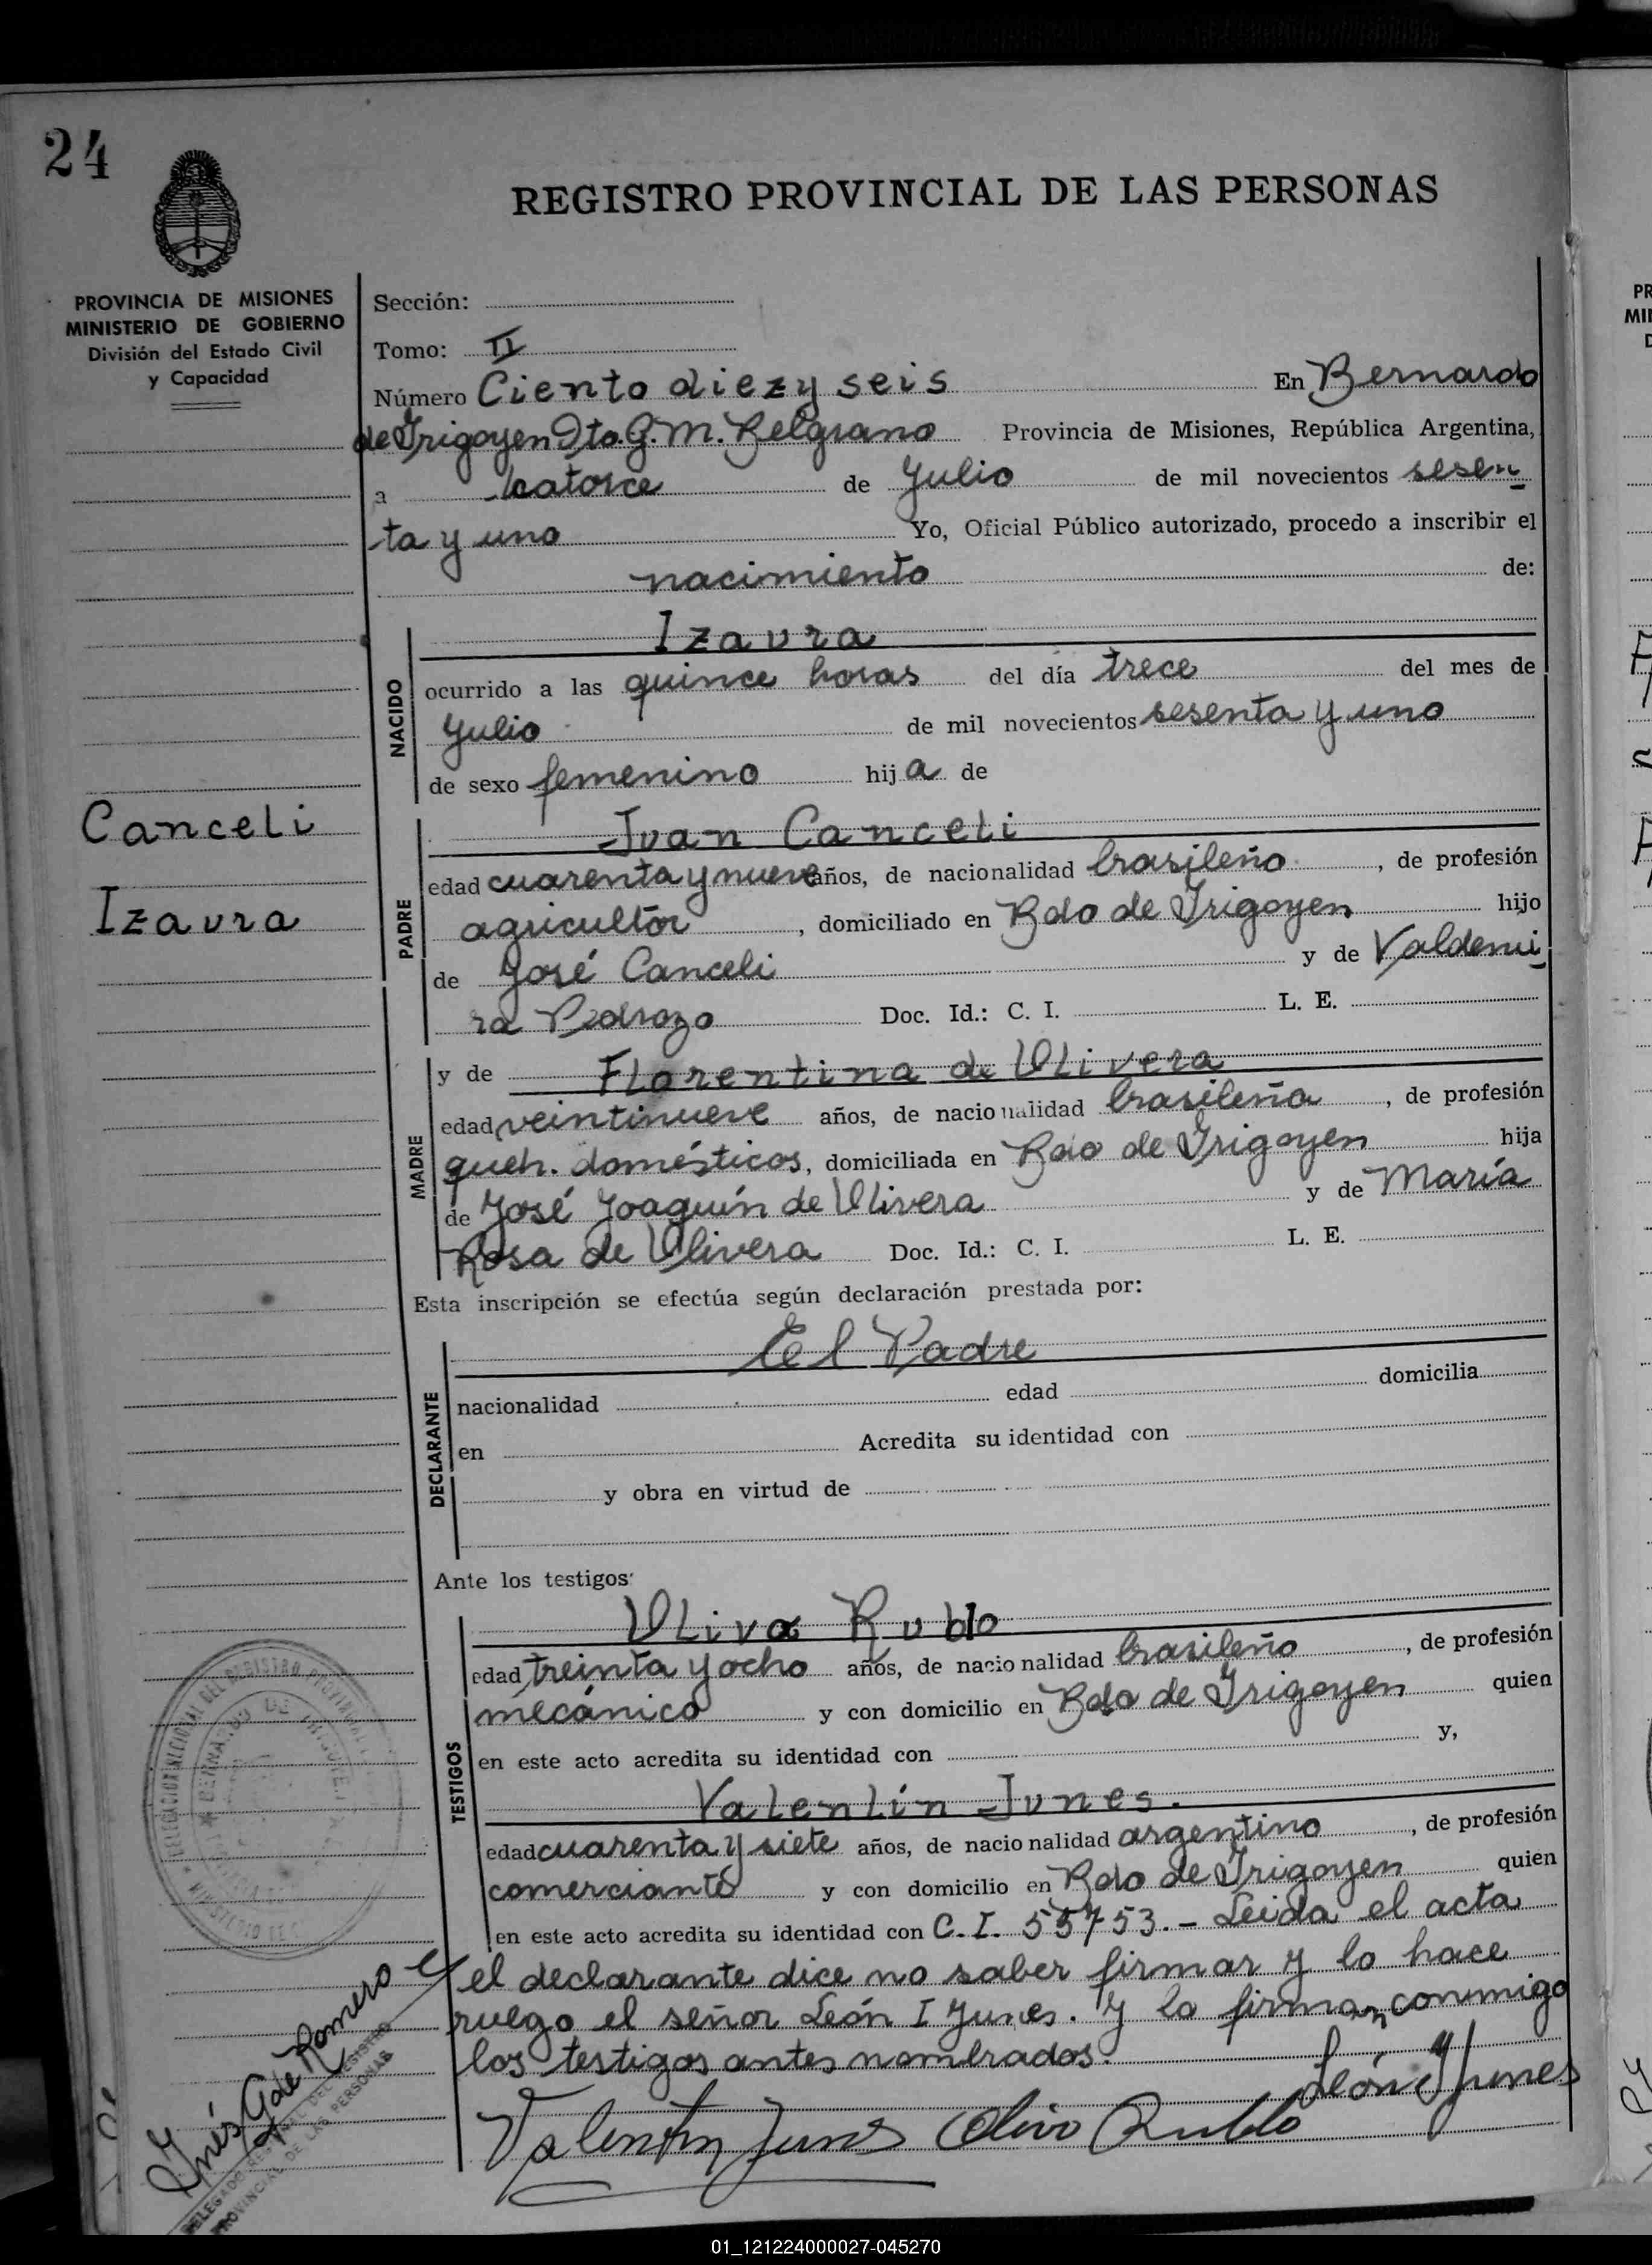 24
REGISTRO PROVINCIAL DE LAS PERSONAS
PROVINCIA DE MISIONES
MINISTERIO DE GOBIERNO
División del Estado Civil
y Capacidad
Sección:
Tomo: II
Número Ciento diez y seis En Bernardo
de Irigoyen Dto. G. M. Belgrano Provincia de Misiones, República Argentina,
a catorce de Julio de mil novecientos sesen
ta y uno Yo, Oficial Público autorizado, procedo a inscribir el
nacimiento de:
NACIDO
Izaura
ocurrido a las quince horas del día trece del mes de
Julio de mil novecientos sesenta y uno
de sexo femenino hija de
Canceli
Izaura
PADRE
Juan Canceli
edad cuarenta y nueve años, de nacionalidad brasileño, de profesión
agricultor, domiciliado en Bdo de Irigoyen hijo
de José Canceli y de Valdemi
ra Pedrozo Doc. Id.: C. I. L. E.
MADRE
y de Florentina de Olivera
edad veintinueve años, de nacionalidad brasileña, de profesión
queh. domésticos, domiciliada en Bdo de Irigoyen hija
de José Joaquín de Olivera y de María
Rosa de Olivera Doc. Id.: C. I. L. E.
Esta inscripción se efectúa según declaración prestada por:
DECLARANTE
El Padre
nacionalidad edad domicilia
en Acredita su identidad con
y obra en virtud de
Ante los testigos
TESTIGOS
Olivo Rublo
edad treinta y ocho años, de nacionalidad brasileño, de profesión
mecánico y con domicilio en Bdo de Irigoyen quien
en este acto acredita su identidad con y,
Valentín Junes.
edad cuarenta y siete años, de nacionalidad argentino, de profesión
comerciante y con domicilio en Bdo de Irigoyen quien
en este acto acredita su identidad con C. I. 55753. - Leida el acta
el declarante dice no saber firmar y lo hace
ruego el señor León I Junes. Y la firman conmigo
los testigos antes nombrados.
León I Junes
Valentín Junes Olivo Rublo
Inés G de Romero
DELEGADO REGIONAL DEL REGISTRO
PROVINCIAL DE LAS PERSONAS
01_121224000027-045270